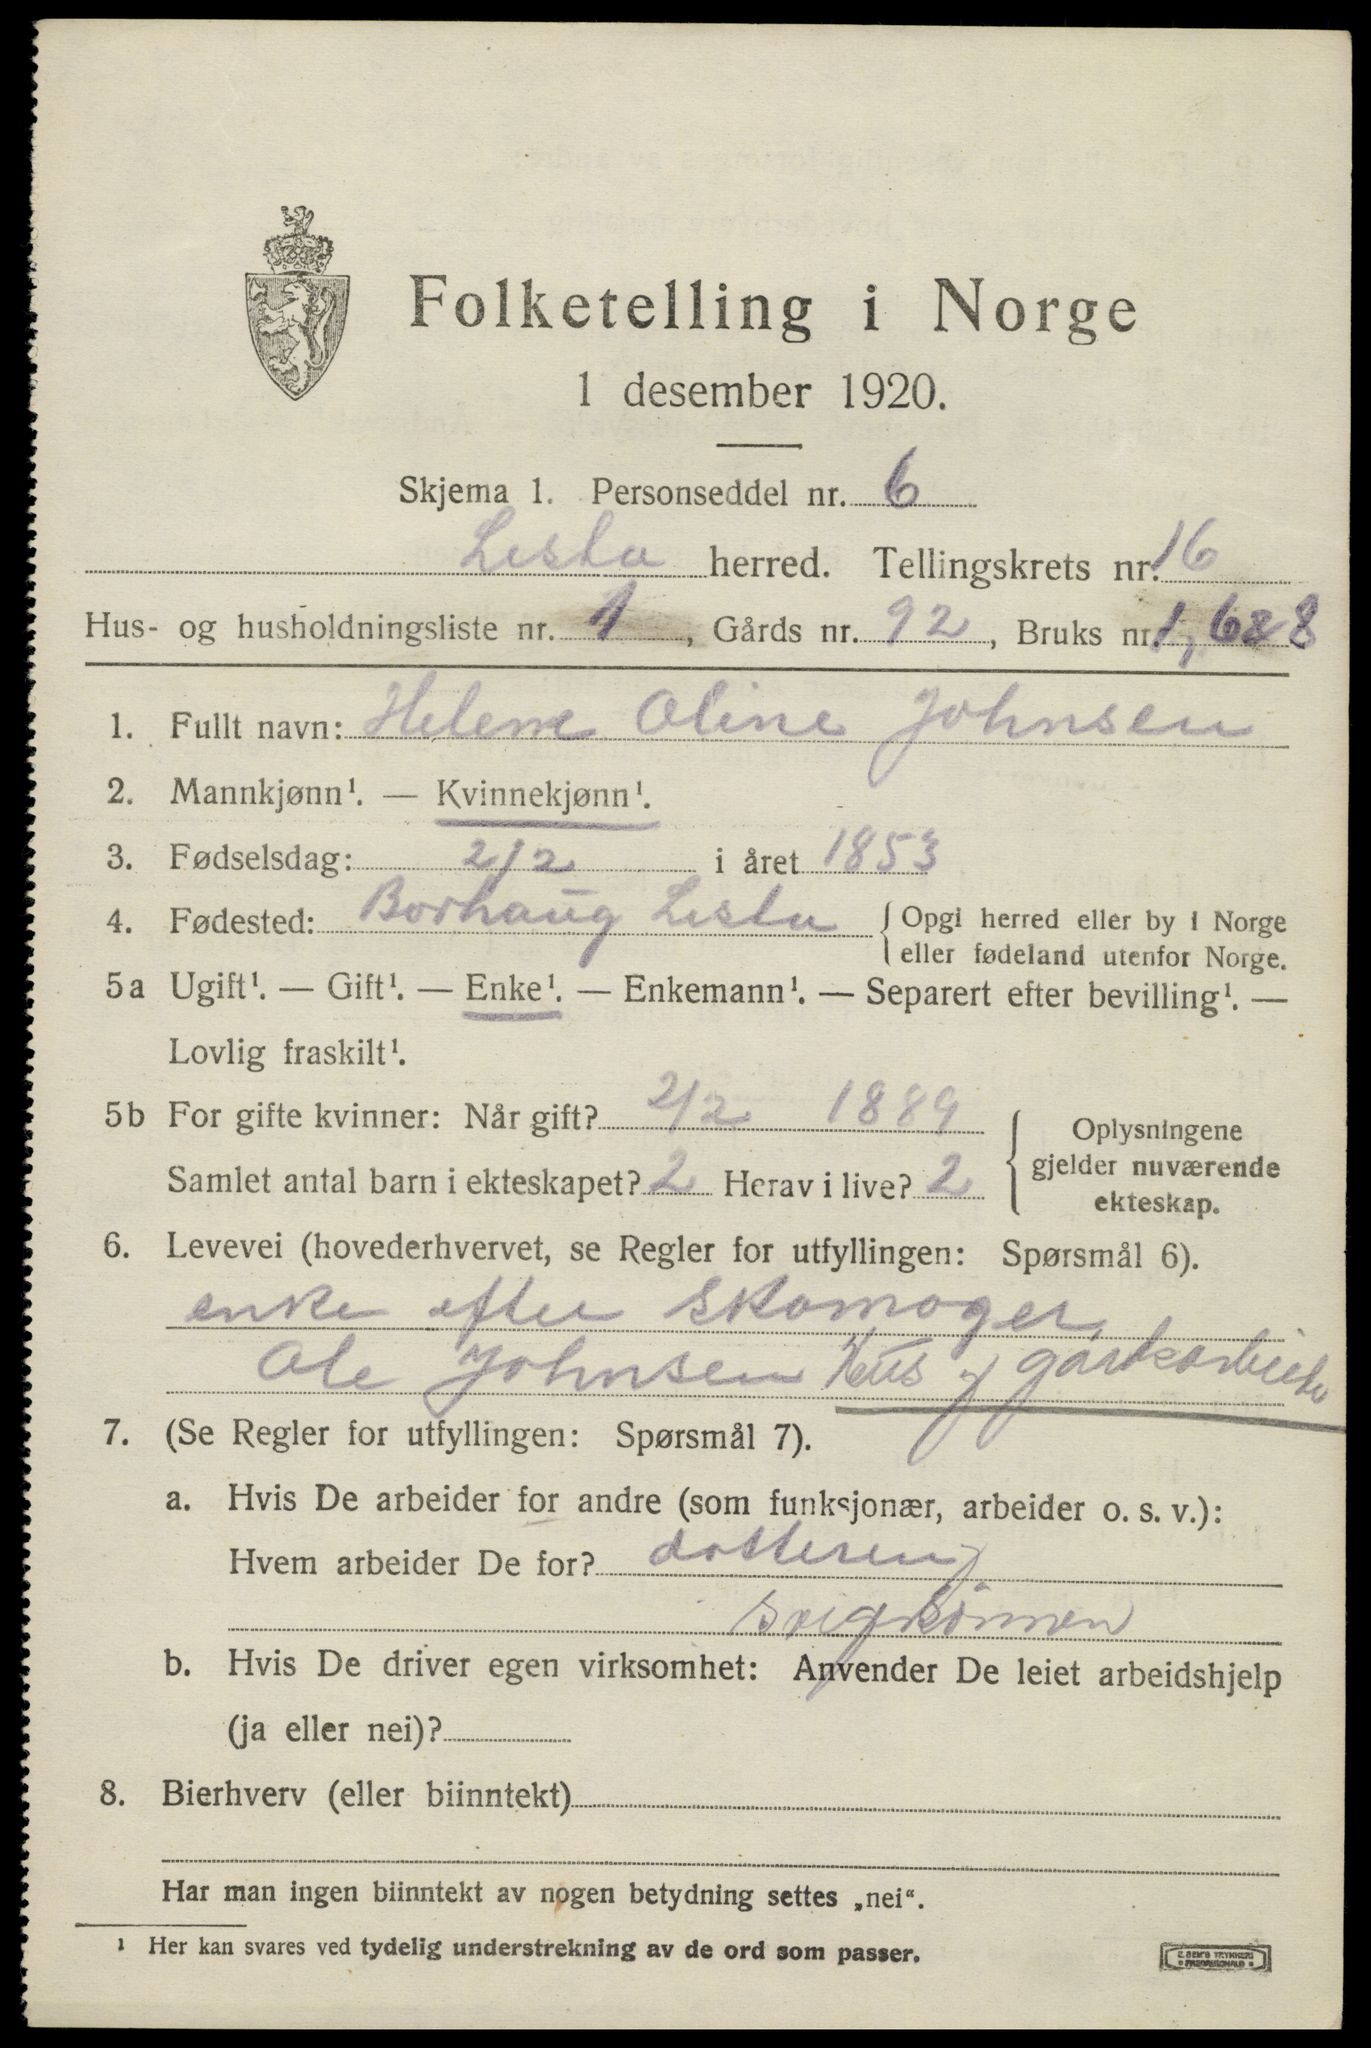 Folketelling i Norge
1 desember 1920.
Skjema 1. Personseddel nr. 6
Lista herred. Tellingskrets nr. 16
Hus- og husholdningsliste nr. 1, Gårds nr. 92, Bruks nr. 1, 6 & 8
1. Fullt navn: Helene Oline Johnsen
2. Mannkjønn¹. — Kvinnekjønn¹.
3. Fødselsdag: 2/2 i året 1853
4. Fødested: Borhaug Lista {Opgi herred eller by i Norge
eller fødeland utenfor Norge.
5a Ugift¹. — Gift¹. — Enke¹. — Enkemann¹. — Separert efter bevilling¹. —
Lovlig fraskilt¹.
5b For gifte kvinner: Når gift? 2/2 1889
Samlet antal barn i ekteskapet? 2 Herav i live? 2
{Oplysningene
gjelder nuværende
ekteskap.
6. Levevei (hovederhvervet, se Regler for utfyllingen: Spørsmål 6).
enke efter skomager
Ole Johnsen Hus og gårdsarbeide
7. (Se Regler for utfyllingen: Spørsmål 7).
a. Hvis De arbeider for andre (som funksjonær, arbeider o. s. v.):
Hvem arbeider De for? datteren
svigersønnen
b. Hvis De driver egen virksomhet: Anvender De leiet arbeidshjelp
(ja eller nei)?
8. Bierhverv (eller biinntekt)
Har man ingen biinntekt av nogen betydning settes „nei“.
¹ Her kan svares ved tydelig understrekning av de ord som passer.